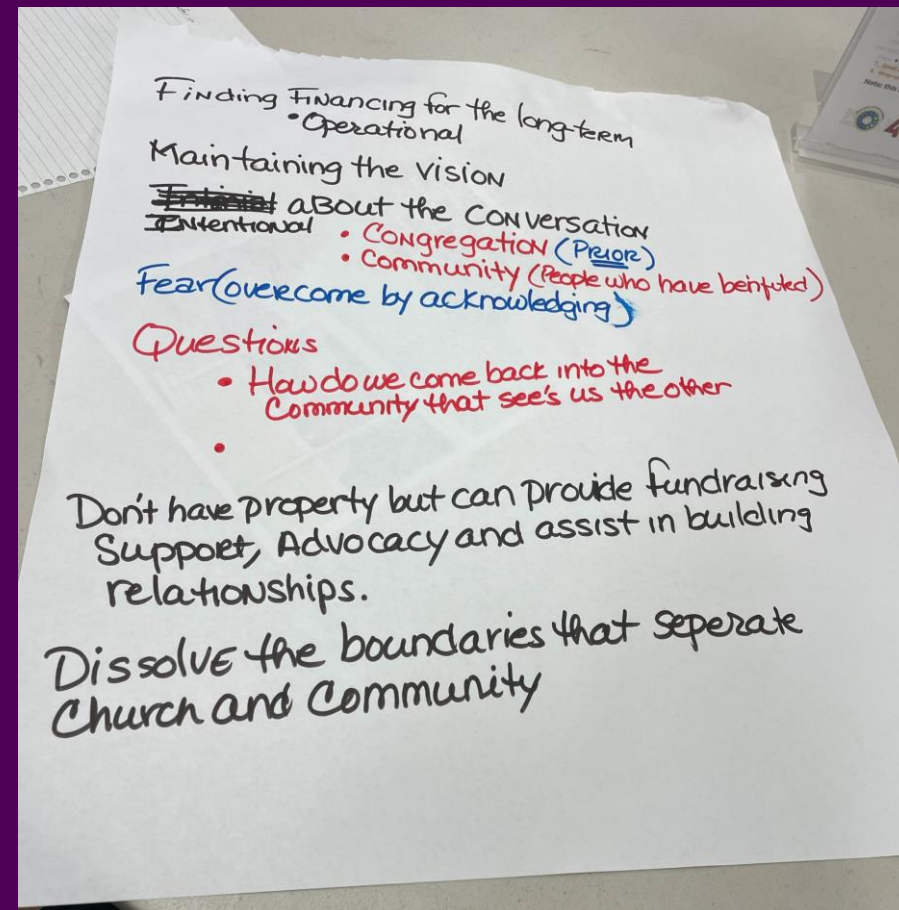 Finding Financing for the long-term
• Operational
Maintaining the vision
about the conversation
Intentional
• Congregation (Prior)
• Community (People who have been)
Fear (overcome by acknowledging)
Questions
• How do we come back into the
Community that see's us the other
•
Don't have property but can provide fundraising
Support, Advocacy and assist in building
relationships.
Dissolve the boundaries that seperate
Church and Community
Note: this
4